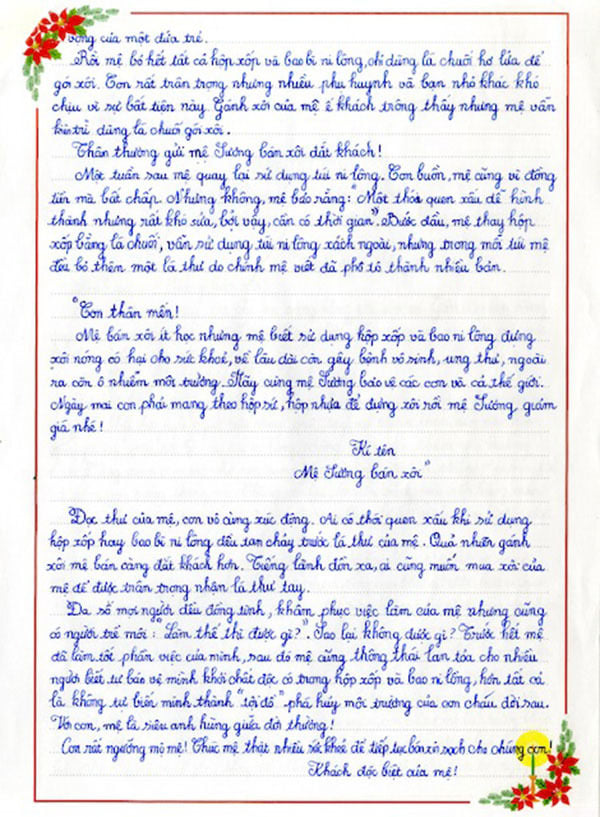 vọng của một đứa trẻ.
Rồi mệ bỏ hết tất cả hộp xốp và bao bì ni lông, chỉ dùng lá chuối hơ lửa để
gói xôi. Con rất trân trọng nhưng nhiều phụ huynh và bạn nhỏ khác khó
chịu vì sự bất tiện này. Gánh xôi của mệ ế khách trông thấy nhưng mệ vẫn
kiên trì dùng lá chuối gói xôi.
Thân thương gửi mệ Sương bán xôi đắt khách!
Một tuần sau mệ quay lại sử dụng túi ni lông. Con buồn, mệ cũng vì đồng
tiền mà bất chấp. Nhưng không, mệ bảo rằng: "Một thói quen xấu dễ hình
thành nhưng rất khó sửa, bởi vậy, cần có thời gian". Bước đầu, mệ thay hộp
xốp bằng lá chuối, vẫn sử dụng túi ni lông xách ngoài, nhưng trong mỗi túi mệ
đều bỏ thêm một lá thư do chính mệ viết đã phô tô thành nhiều bản.
"Con thân mến!
Mệ bán xôi ít học nhưng mệ biết sử dụng hộp xốp và bao ni lông đựng
xôi nóng có hại cho sức khoẻ, về lâu dài còn gây bệnh vô sinh, ung thư, ngoài
ra còn ô nhiễm môi trường. Hãy cùng mệ Sương bảo vệ các con và cả thế giới.
Ngày mai con phải mang theo hộp sứ, hộp nhựa để đựng xôi rồi mệ Sương giảm
giá nhé!
Kí tên
Mệ Sương bán xôi"
Đọc thư của mệ, con vô cùng xúc động. Ai có thói quen xấu khi sử dụng
hộp xốp hay bao bì ni lông đều tan chảy trước lá thư của mệ. Quả nhiên gánh
xôi mệ bán càng đắt khách hơn. Tiếng lành đồn xa, ai cũng muốn mua xôi của
mệ để được trân trọng nhận lá thư tay.
Đa số mọi người đều đồng tình, khâm phục việc làm của mệ nhưng cũng
có người trề môi: "Làm thế thì được gì?" Sao lại không được gì? Trước hết mệ
đã làm tốt phần việc của mình, sau đó mệ cũng thông thái lan tỏa cho nhiều
người biết tự bảo vệ mình khỏi chất độc có trong hộp xốp và bao ni lông, hơn tất cả
là không tự biến mình thành "tội đồ" phá hủy môi trường của con cháu đời sau.
Với con, mệ là siêu anh hùng giữa đời thường!
Con rất ngưỡng mộ mệ! Chúc mệ thật nhiều sức khoẻ để tiếp tục bán xôi sạch cho chúng con!
Khách đặc biệt của mệ!